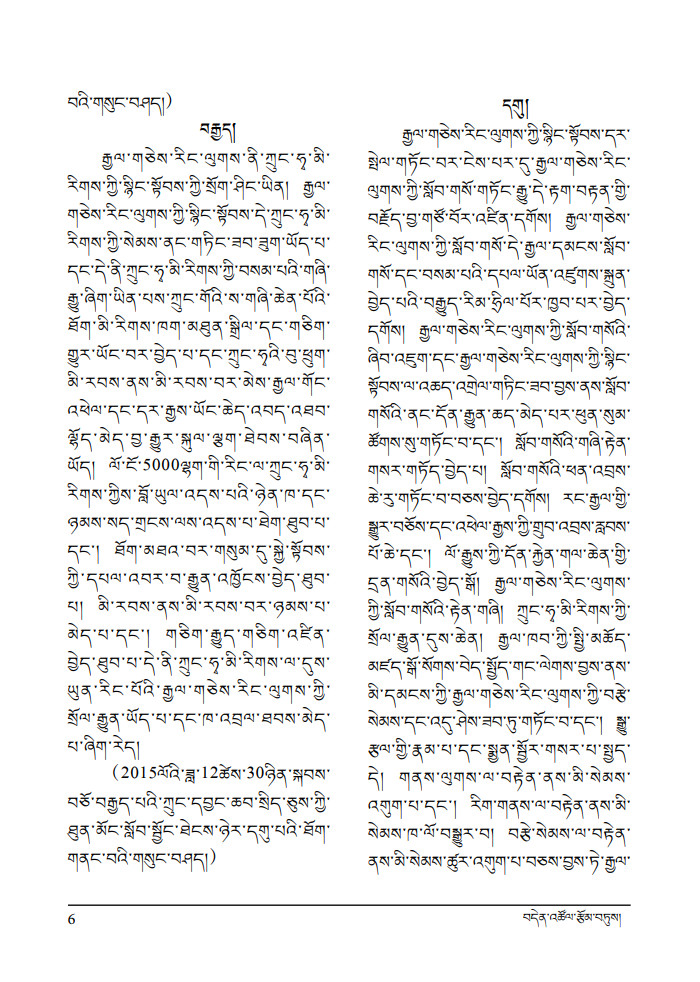 བའི་གསུང་བཤད།)
བརྒྱད།
རྒྱལ་གཅེས་རིང་ལུགས་ནི་ཀྲུང་ཧྭ་མི་
རིགས་ཀྱི་སྙིང་སྟོབས་ཀྱི་སྲོག་ཤིང་ཡིན། རྒྱལ་
གཅེས་རིང་ལུགས་ཀྱི་སྙིང་སྟོབས་དེ་ཀྲུང་ཧྭ་མི་
རིགས་ཀྱི་སེམས་ནང་གཏིང་ཟབ་ཟུག་ཡོད་པ་
དང་དེ་ནི་ཀྲུང་ཧྭ་མི་རིགས་ཀྱི་བསམ་པའི་གཞི་
རྒྱུ་ཞིག་ཡིན་པས་ཀྲུང་གོའི་ས་གཞི་ཆེན་པོའི་
ཐོག་མི་རིགས་ཁག་མཐུན་སྒྲིལ་དང་གཅིག་
གྱུར་ཡོང་བར་བྱེད་པ་དང་ཀྲུང་ཧྭའི་བུ་ཕྲུག་
མི་རབས་ནས་མི་རབས་བར་མེས་རྒྱལ་གོང་
འཕེལ་དང་དར་རྒྱས་ཡོང་ཆེད་འབད་འཐབ་
ལྷོད་མེད་བྱ་རྒྱུར་སྐུལ་ལྕག་ཐེབས་བཞིན་
ཡོད། ལོ་ངོ་5000ལྷག་གི་རིང་ལ་ཀྲུང་ཧྭ་མི་
རིགས་ཀྱིས་བློ་ཡུལ་འདས་པའི་ཉེན་ཁ་དང་
ཉམས་སད་གྲངས་ལས་འདས་པ་ཐེག་ཐུབ་པ་
དང༌། ཐོག་མཐའ་བར་གསུམ་དུ་སྐྱེ་སྟོབས་
ཀྱི་དཔལ་འབར་བ་རྒྱུན་འཁྱོངས་བྱེད་ཐུབ་
པ། མི་རབས་ནས་མི་རབས་བར་ཉམས་པ་
མེད་པ་དང༌། གཅིག་རྒྱུད་གཅིག་འཛིན་
བྱེད་ཐུབ་པ་དེ་ནི་ཀྲུང་ཧྭ་མི་རིགས་ལ་དུས་
ཡུན་རིང་པོའི་རྒྱལ་གཅེས་རིང་ལུགས་ཀྱི་
སྲོལ་རྒྱུན་ཡོད་པ་དང་ཁ་འབྲལ་ཐབས་མེད་
པ་ཞིག་རེད།
(2015ལོའི་ཟླ་12ཚེས་30ཉིན་སྐབས་
བཅོ་བརྒྱད་པའི་ཀྲུང་དབྱང་ཆབ་སྲིད་ཅུས་ཀྱི་
ཐུན་མོང་སློབ་སྦྱོང་ཐེངས་ཉེར་དགུ་པའི་ཐོག་
གནང་བའི་གསུང་བཤད།)
དགུ།
རྒྱལ་གཅེས་རིང་ལུགས་ཀྱི་སྙིང་སྟོབས་དར་
སྤེལ་གཏོང་བར་ངེས་པར་དུ་རྒྱལ་གཅེས་རིང་
ལུགས་ཀྱི་སློབ་གསོ་གཏོང་རྒྱུ་དེ་རྟག་བརྟན་གྱི་
བརྗོད་བྱ་གཙོ་བོར་འཛིན་དགོས། རྒྱལ་གཅེས་
རིང་ལུགས་ཀྱི་སློབ་གསོ་དེ་རྒྱལ་དམངས་སློབ་
གསོ་དང་བསམ་པའི་དཔལ་ཡོན་འཛུགས་སྐྲུན་
བྱེད་པའི་བརྒྱུད་རིམ་ཧྲིལ་པོར་ཁྱབ་པར་བྱེད་
དགོས། རྒྱལ་གཅེས་རིང་ལུགས་ཀྱི་སློབ་གསོའི་
ཞིབ་འཇུག་དང་རྒྱལ་གཅེས་རིང་ལུགས་ཀྱི་སྙིང་
སྟོབས་ལ་འཆད་འགྲེལ་གཏིང་ཟབ་བྱས་ནས་སློབ་
གསོའི་ནང་དོན་རྒྱུན་ཆད་མེད་པར་ཕུན་སུམ་
ཚོགས་སུ་གཏོང་བ་དང༌། སློབ་གསོའི་གཞི་རྟེན་
གསར་གཏོད་བྱེད་པ། སློབ་གསོའི་ཕན་འབྲས་
ཆེ་རུ་གཏོང་བ་བཅས་བྱེད་དགོས། རང་རྒྱལ་གྱི་
སྒྱུར་བཅོས་དང་འཕེལ་རྒྱས་ཀྱི་གྲུབ་འབྲས་རླབས་
པོ་ཆེ་དང༌། ལོ་རྒྱུས་ཀྱི་དོན་རྐྱེན་གལ་ཆེན་གྱི་
དྲན་གསོའི་བྱེད་སྒོ། རྒྱལ་གཅེས་རིང་ལུགས་
ཀྱི་སློབ་གསོའི་རྟེན་གཞི། ཀྲུང་ཧྭ་མི་རིགས་ཀྱི་
སྲོལ་རྒྱུན་དུས་ཆེན། རྒྱལ་ཁབ་ཀྱི་སྤྱི་མཆོད་
མཛད་སྒོ་སོགས་བེད་སྤྱོད་གང་ལེགས་བྱས་ནས་
མི་དམངས་ཀྱི་རྒྱལ་གཅེས་རིང་ལུགས་ཀྱི་བརྩེ་
སེམས་དང་འདུ་ཤེས་ཟབ་ཏུ་གཏོང་བ་དང༌། སྒྱུ་
རྩལ་གྱི་རྣམ་པ་དང་སྨྱན་སྦྱོར་གསར་པ་སྤྱད་
དེ། གནས་ལུགས་ལ་བརྟེན་ནས་མི་སེམས་
འགུག་པ་དང༌། རིག་གནས་ལ་བརྟེན་ནས་མི་
སེམས་ཁ་ལོ་བསྒྱུར་བ། བརྩེ་སེམས་ལ་བརྟེན་
ནས་མི་སེམས་ཚུར་འགུག་པ་བཅས་བྱས་ཏེ་རྒྱལ་
6
བདེན་འཚོལ་རྩོམ་བཏུས།